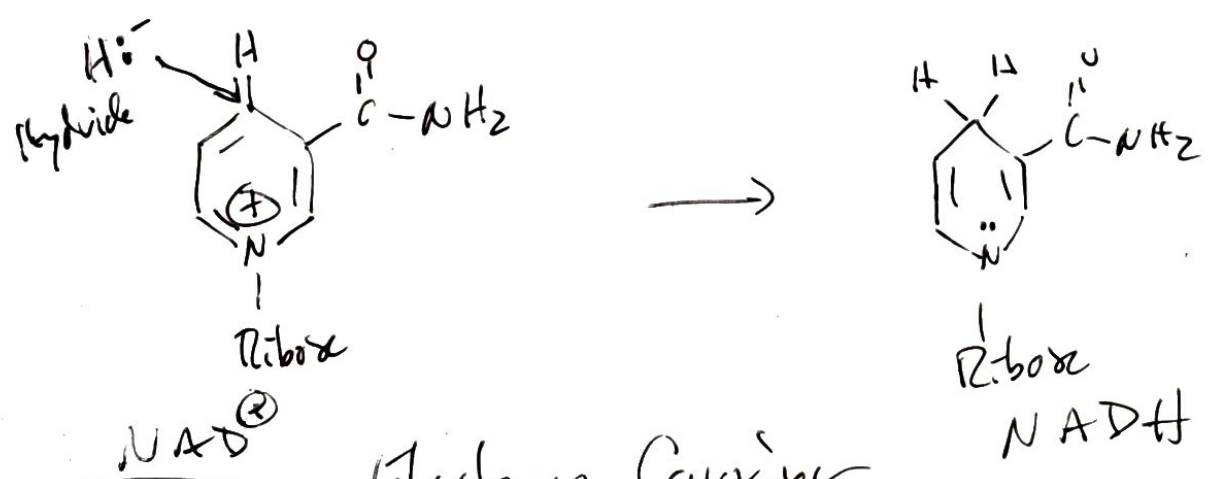 H:⁻
Hydride
H
O
C - NH2
N
Ribose
NAD⊕
H H
O
C - NH2
N
Ribose
NADH